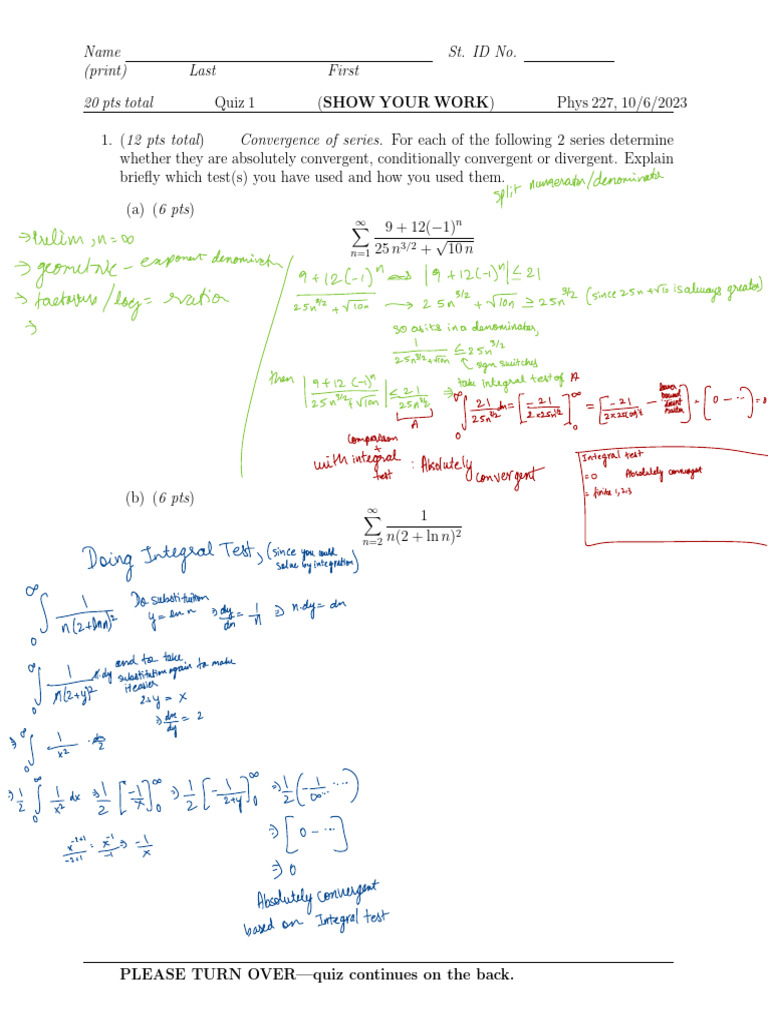 Name St. ID No.
(print) Last First
20 pts total Quiz 1 (SHOW YOUR WORK) Phys 227, 10/6/2023
1. (12 pts total) Convergence of series. For each of the following 2 series determine
whether they are absolutely convergent, conditionally convergent or divergent. Explain
briefly which test(s) you have used and how you used them.
split numerator/denominator
(a) (6 pts)
∞ ∑ n=1 (9 + 12(−1)^n) / (25 n^{3/2} + √(10 n))
→ prelim, n=∞
→ geometric - exponent denominator
→ / log = ration
→
9+12(-1)^n / 25n^{3/2}+√10n ⟹ |9+12(-1)^n| ≤ 21
→ 25n^{3/2} + √10n ≥ 25n^{3/2} (since 25n+√10 is always greater)
so as its in a denominator,
1 / 25n^{3/2}+√10n ≤ 25n^{3/2}
sgn switches
then |9+12(-1)^n / 25n^{3/2}+√10n| ≤ 21 / 25n^{3/2} ⇒ take integral test of A
A
∞ ∫ 0 21 / 25n^{3/2} dn = [-21 / 2×25n^{1/2}]^∞_0 = [-21 / 2×25(∞)^{1/2} - ] = [0 - ...] = 0
comparison
+
with integral test : Absolutely convergent
Integral test
= 0 Absolutely convergent
= finite 1,2,3
(b) (6 pts)
∞ ∑ n=2 1 / n(2 + ln n)^2
Doing Integral Test, (since you could
solve by integration)
∞ ∫ 0 1 / n(2+lnn)^2 Do substitution
y = ln n ⇒ dy/dn = 1/n ⇒ n·dy = dn
∞ ∫ 0 1 / n(2+y)^2 n·dy and to take
substitution again to make
it easier
2+y = x
⇒ dx/dy = 2
⇒ ∞ ∫ 0 1/x^2 · dx/2
⇒ 1/2 ∞ ∫ 0 1/x^2 dx ⇒ 1/2 [-1/x]^∞_0 ⇒ 1/2 [-1/2+y]^∞_0 ⇒ 1/2 (-1/∞ ....)
x^{-2+1} / -2+1 = x^{-1} / -1 ⇒ -1/x
⇒ [0 - ...]
⇒ 0
Absolutely convergent
based on Integral test
PLEASE TURN OVER—quiz continues on the back.